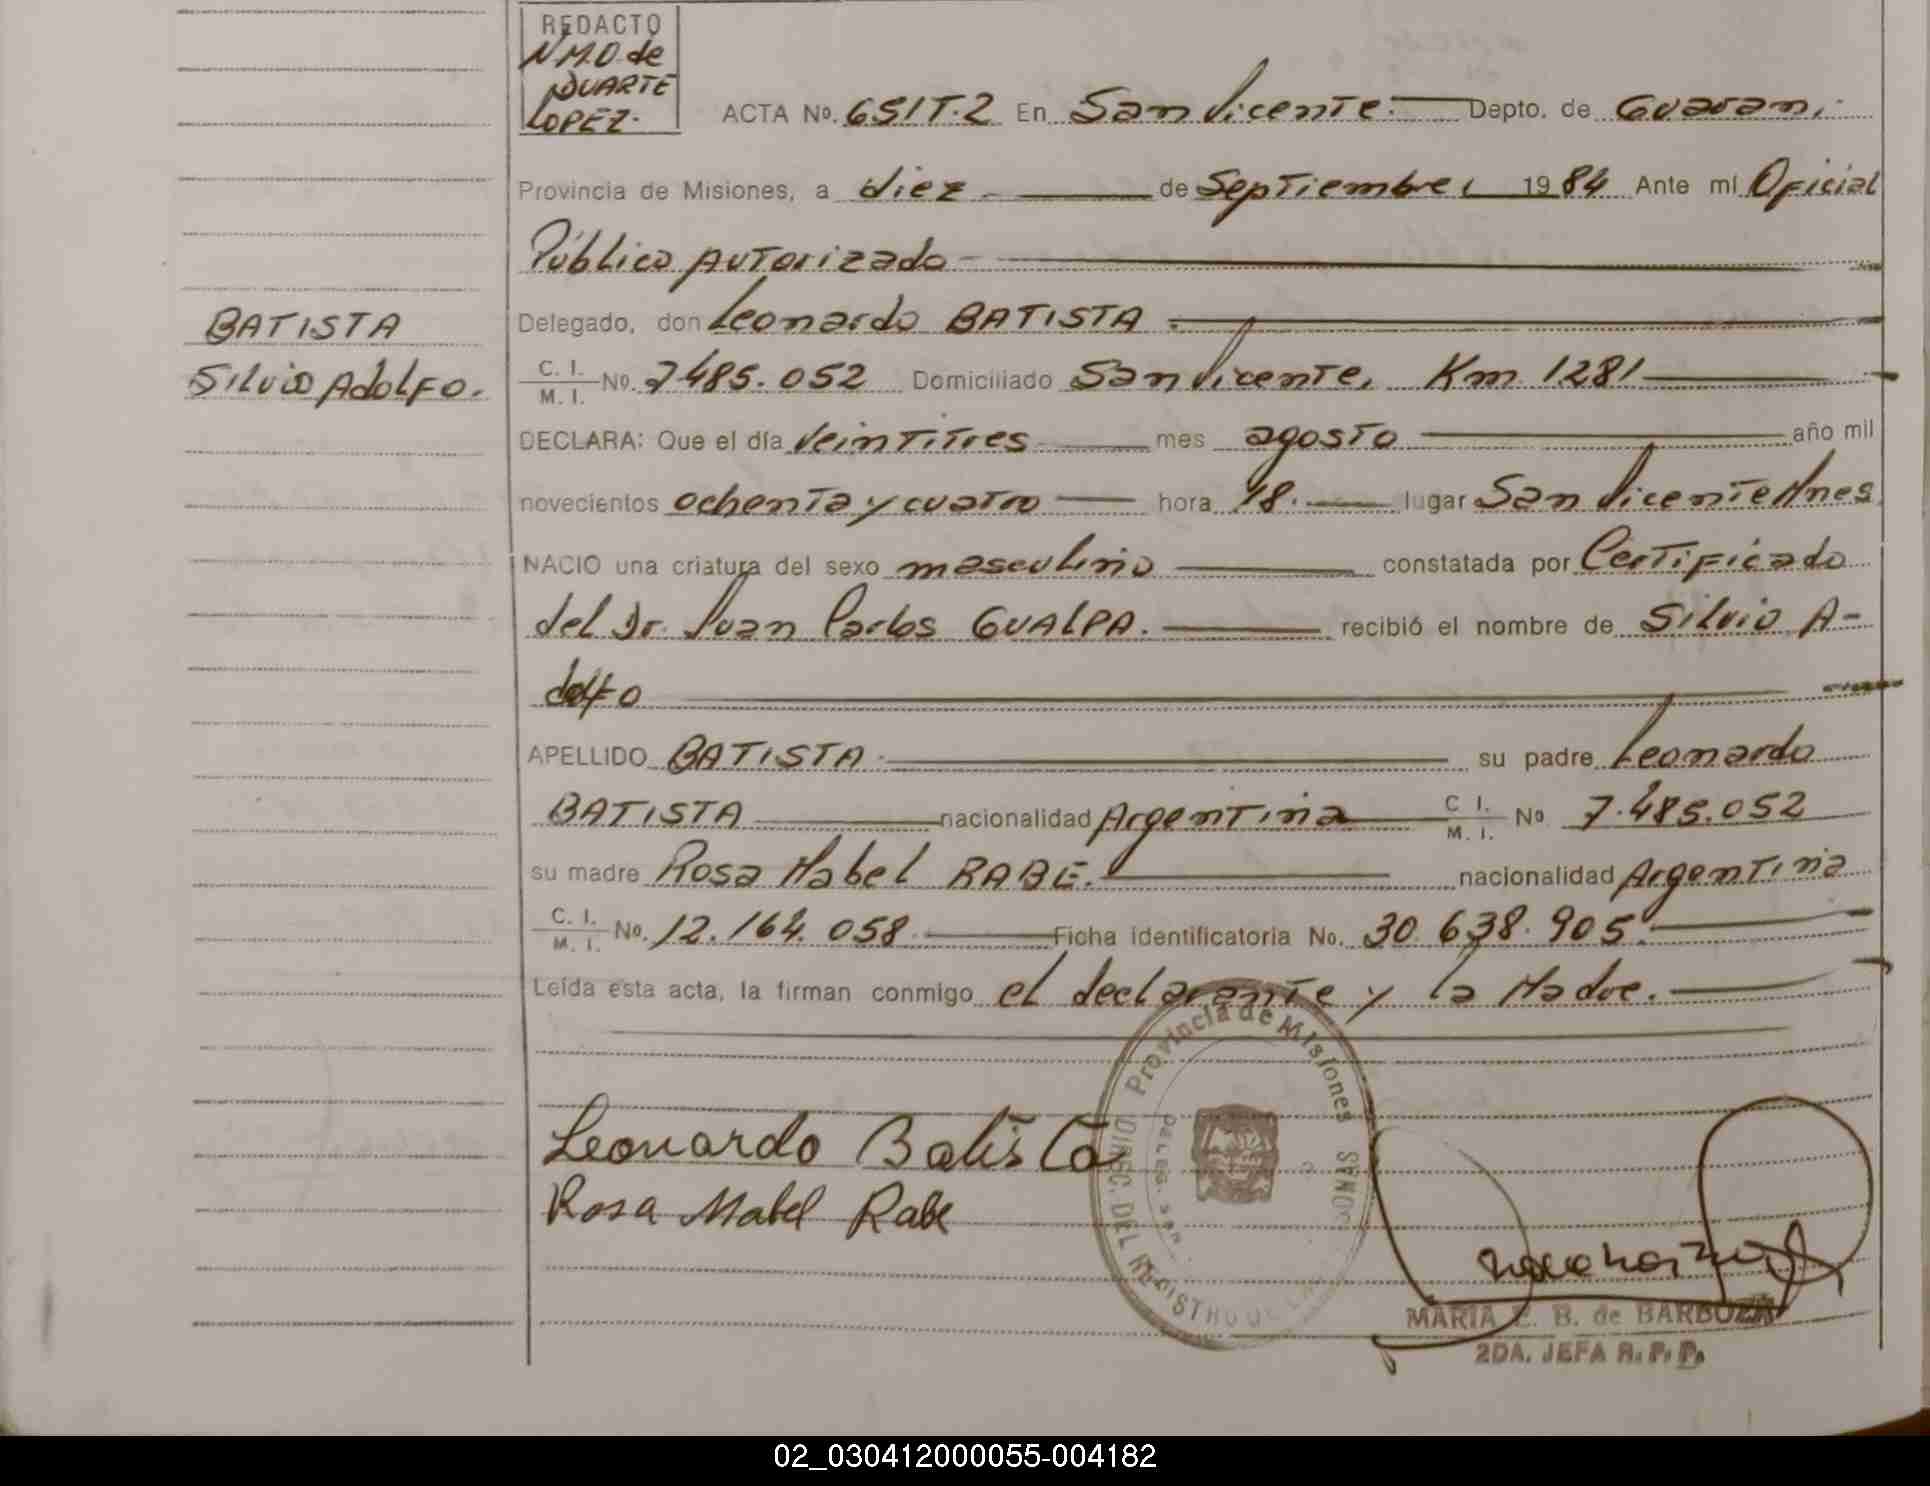 REDACTO
N.M.O. de
DUARTE
LOPEZ.
ACTA No. 651T.2 En San Vicente. Depto. de Guarani
Provincia de Misiones, a diez de Septiembre 1984 Ante mí Oficial
Público Autorizado
BATISTA
Silvio Adolfo.
Delegado, don Leonardo BATISTA.
C. I. / M. I. No. 7485.052 Domiciliado San Vicente, Km 1281
DECLARA: Que el día veintitres mes agosto año mil
novecientos ochenta y cuatro hora 18. lugar San Vicente Mnes
NACIO una criatura del sexo masculino constatada por Certificado
del Dr. Juan Carlos GUALPA. recibió el nombre de Silvio A-
dolfo
APELLIDO BATISTA su padre Leonardo
BATISTA nacionalidad Argentina C I. / M. I. No 7.485.052
su madre Rosa Mabel RABE. nacionalidad Argentina
C. I. / M. I. No. 12.164.058 Ficha identificatoria No. 30.638.905.
Leída esta acta, la firman conmigo el declarante y la Madre.
Leonardo Batista
Rosa Mabel Rabe
Provincia de Misiones
DIREC. DEL REGISTRO DE
MARIA E. B. de BARBOZA
2DA. JEFA R. P. P.
02_030412000055-004182